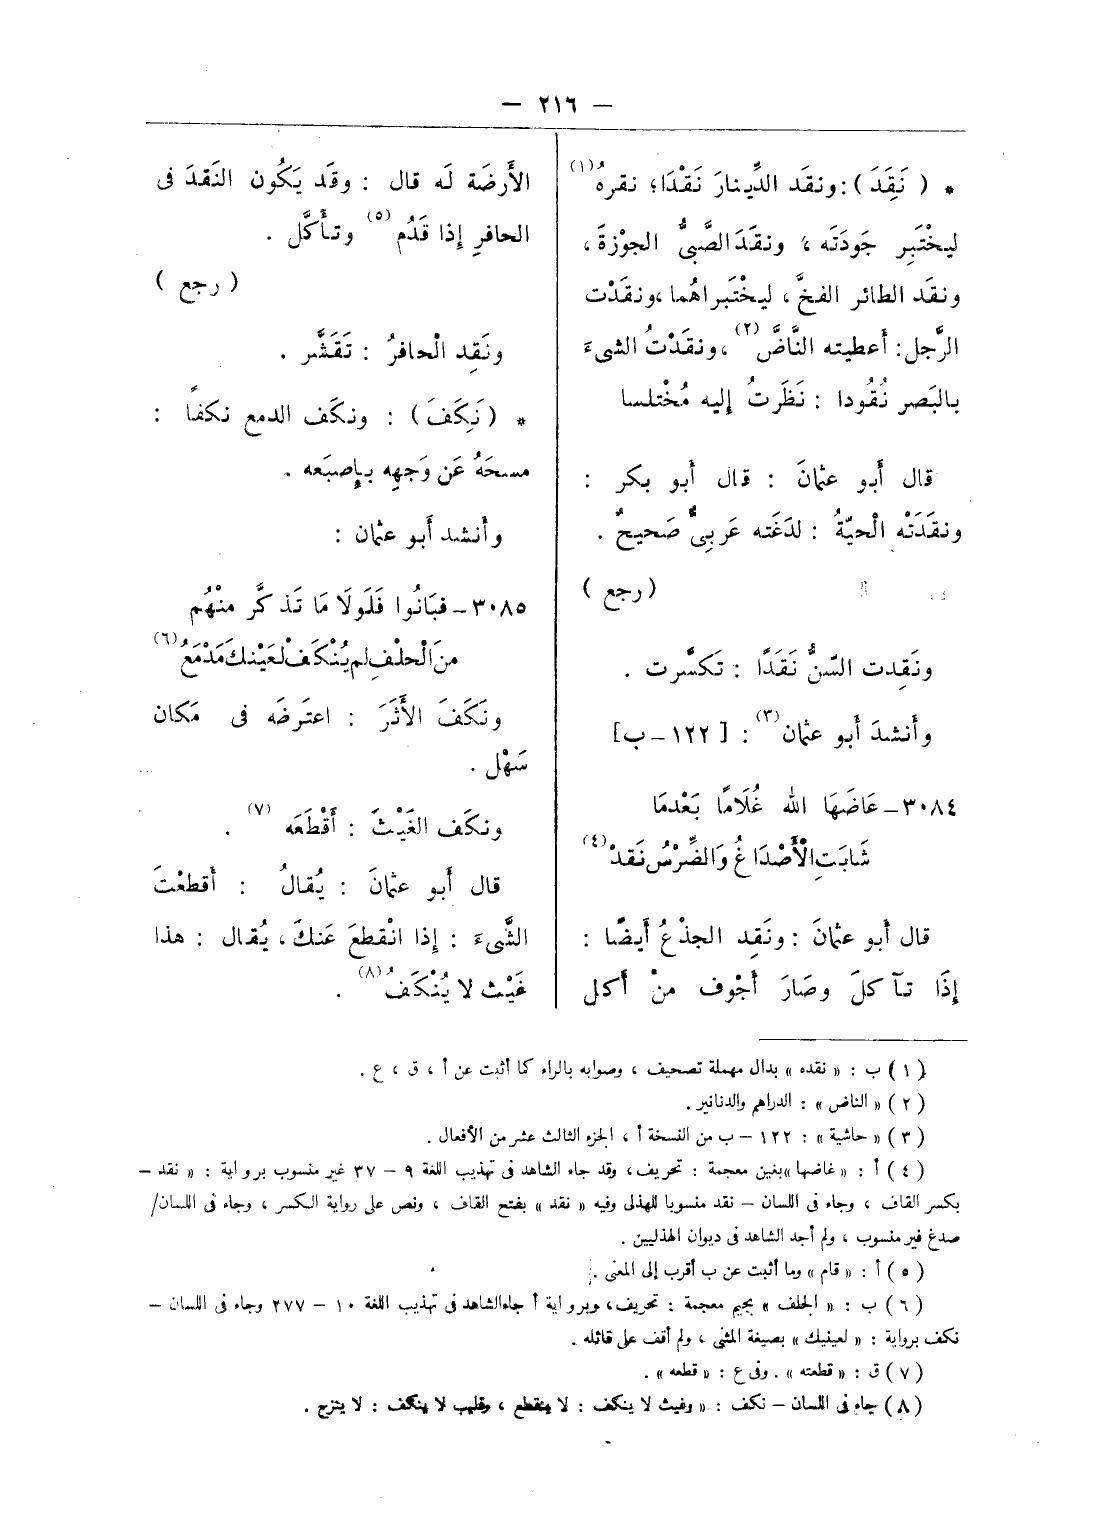 — ٢١٦ —
* ( نَقِدَ ) : ونقد الدِّينارَ نَقْدًا ؛ نقرهُ (١)
ليخْتَبِر جَودَتَه ، ونقَدَ الصَّبىُّ الجوْزةَ ،
ونقد الطائر الفخَّ ، ليخْتَبراهُما ، ونقَدْت
الرَّجل : أعطيته النَّاضَّ (٢) ، ونقَدْتُ الشىءَ
بالبَصر نُقُودا : نَظَرتُ إليه مُخْتلسا
قال أَبو عثمانَ : قال أَبو بكر :
ونقَدَتْه الْحيّةُ : لدَغَته عَربىٌّ صَحيحٌ .
( رجع )
ونَقِدت السّنُّ نَقَدًا : تَكسَّرت .
وأَنشدَ أَبو عثمان (٣) : [ ١٢٢ – ب ]
٣٠٨٤ – عَاضَهَا الله غُلَامًا بَعْدمَا
شَابَتِ الْأَصْدَاغُ وَالضِّرْسُ نَقدْ (٤)
قال أَبو عثمانَ : ونَقِد الجذْعُ أَيضًا :
إِذَا تـآكلَ وصَارَ أَجْوف منْ أَكل
الأَرضَة لَه قال : وقَد يَكُون النَقدَ فى
الحافرِ إِذا قَدُم (٥) وتـأَكَّل .
( رجع )
ونَقِد الْحافرُ : تَقَشَّر .
* ( نَكِفَ ) : ونكَف الدمع نكفًا :
مسحَهُ عَن وَجهِه بـإِصبَعه .
وأَنشد أَبو عثمان :
٣٠٨٥ – فبَانُوا فَلَولَا مَا تَذكَّر منْهُم
منَ الْحلْفِ لم يُنْكَفْ لعَيْنك مَدْمَعُ (٦)
ونَكَفَ الأَثَرَ : اعتَرضَه فى مَكان
سَهْل .
ونكَف الغَيْثَ : أَقْطَعَه (٧) .
قال أَبو عثمانَ : يُقالُ : أَقطعْتَ
الشَّىءَ : إِذا انْقطعَ عَنكَ ، يُقال : هذا
غَيْث لا يُنْكَفُ (٨) .
( ١ ) ب : « نقده » بدال مهملة تصحيف ، وصوابه بالراء كما أثبت عن أ ، ق ، ع .
( ٢ ) « الناض » : الدراهم والدنانير .
( ٣ ) « حاشية » : ١٢٢ – ب من النسخة أ ، الجزء الثالث عشر من الأفعال .
( ٤ ) أ : « غاضها » بغين معجمة : تحريف ، وقد جاء الشاهد فى تهذيب اللغة ٩ – ٣٧ غير منسوب برواية : « نقد –
بكسر القاف ، وجاء فى اللسان – نقد منسوبا للهذلى وفيه « نقد » بفتح القاف ، ونص على رواية الكسر ، وجاء فى اللسان/
صدغ غير منسوب ، ولم أجد الشاهد فى ديوان الهذليين .
( ٥ ) أ : « قام » وما أثبت عن ب أقرب إلى المعنى .
( ٦ ) ب : « الجلف » بجيم معجمة : تحريف ، وبرواية أ جاء الشاهد فى تهذيب اللغة ١٠ – ٢٧٧ وجاء فى اللسان –
نكف برواية : « لعينيك » بصيغة المثنى ، ولم أقف على قائله .
( ٧ ) ق : « قطعته » . وفى ع : « قطعه » .
( ٨ ) جاء فى اللسان – نكف : « وغيث لا ينكف : لا ينقطع ، وقليب لا ينكف : لا ينزح .